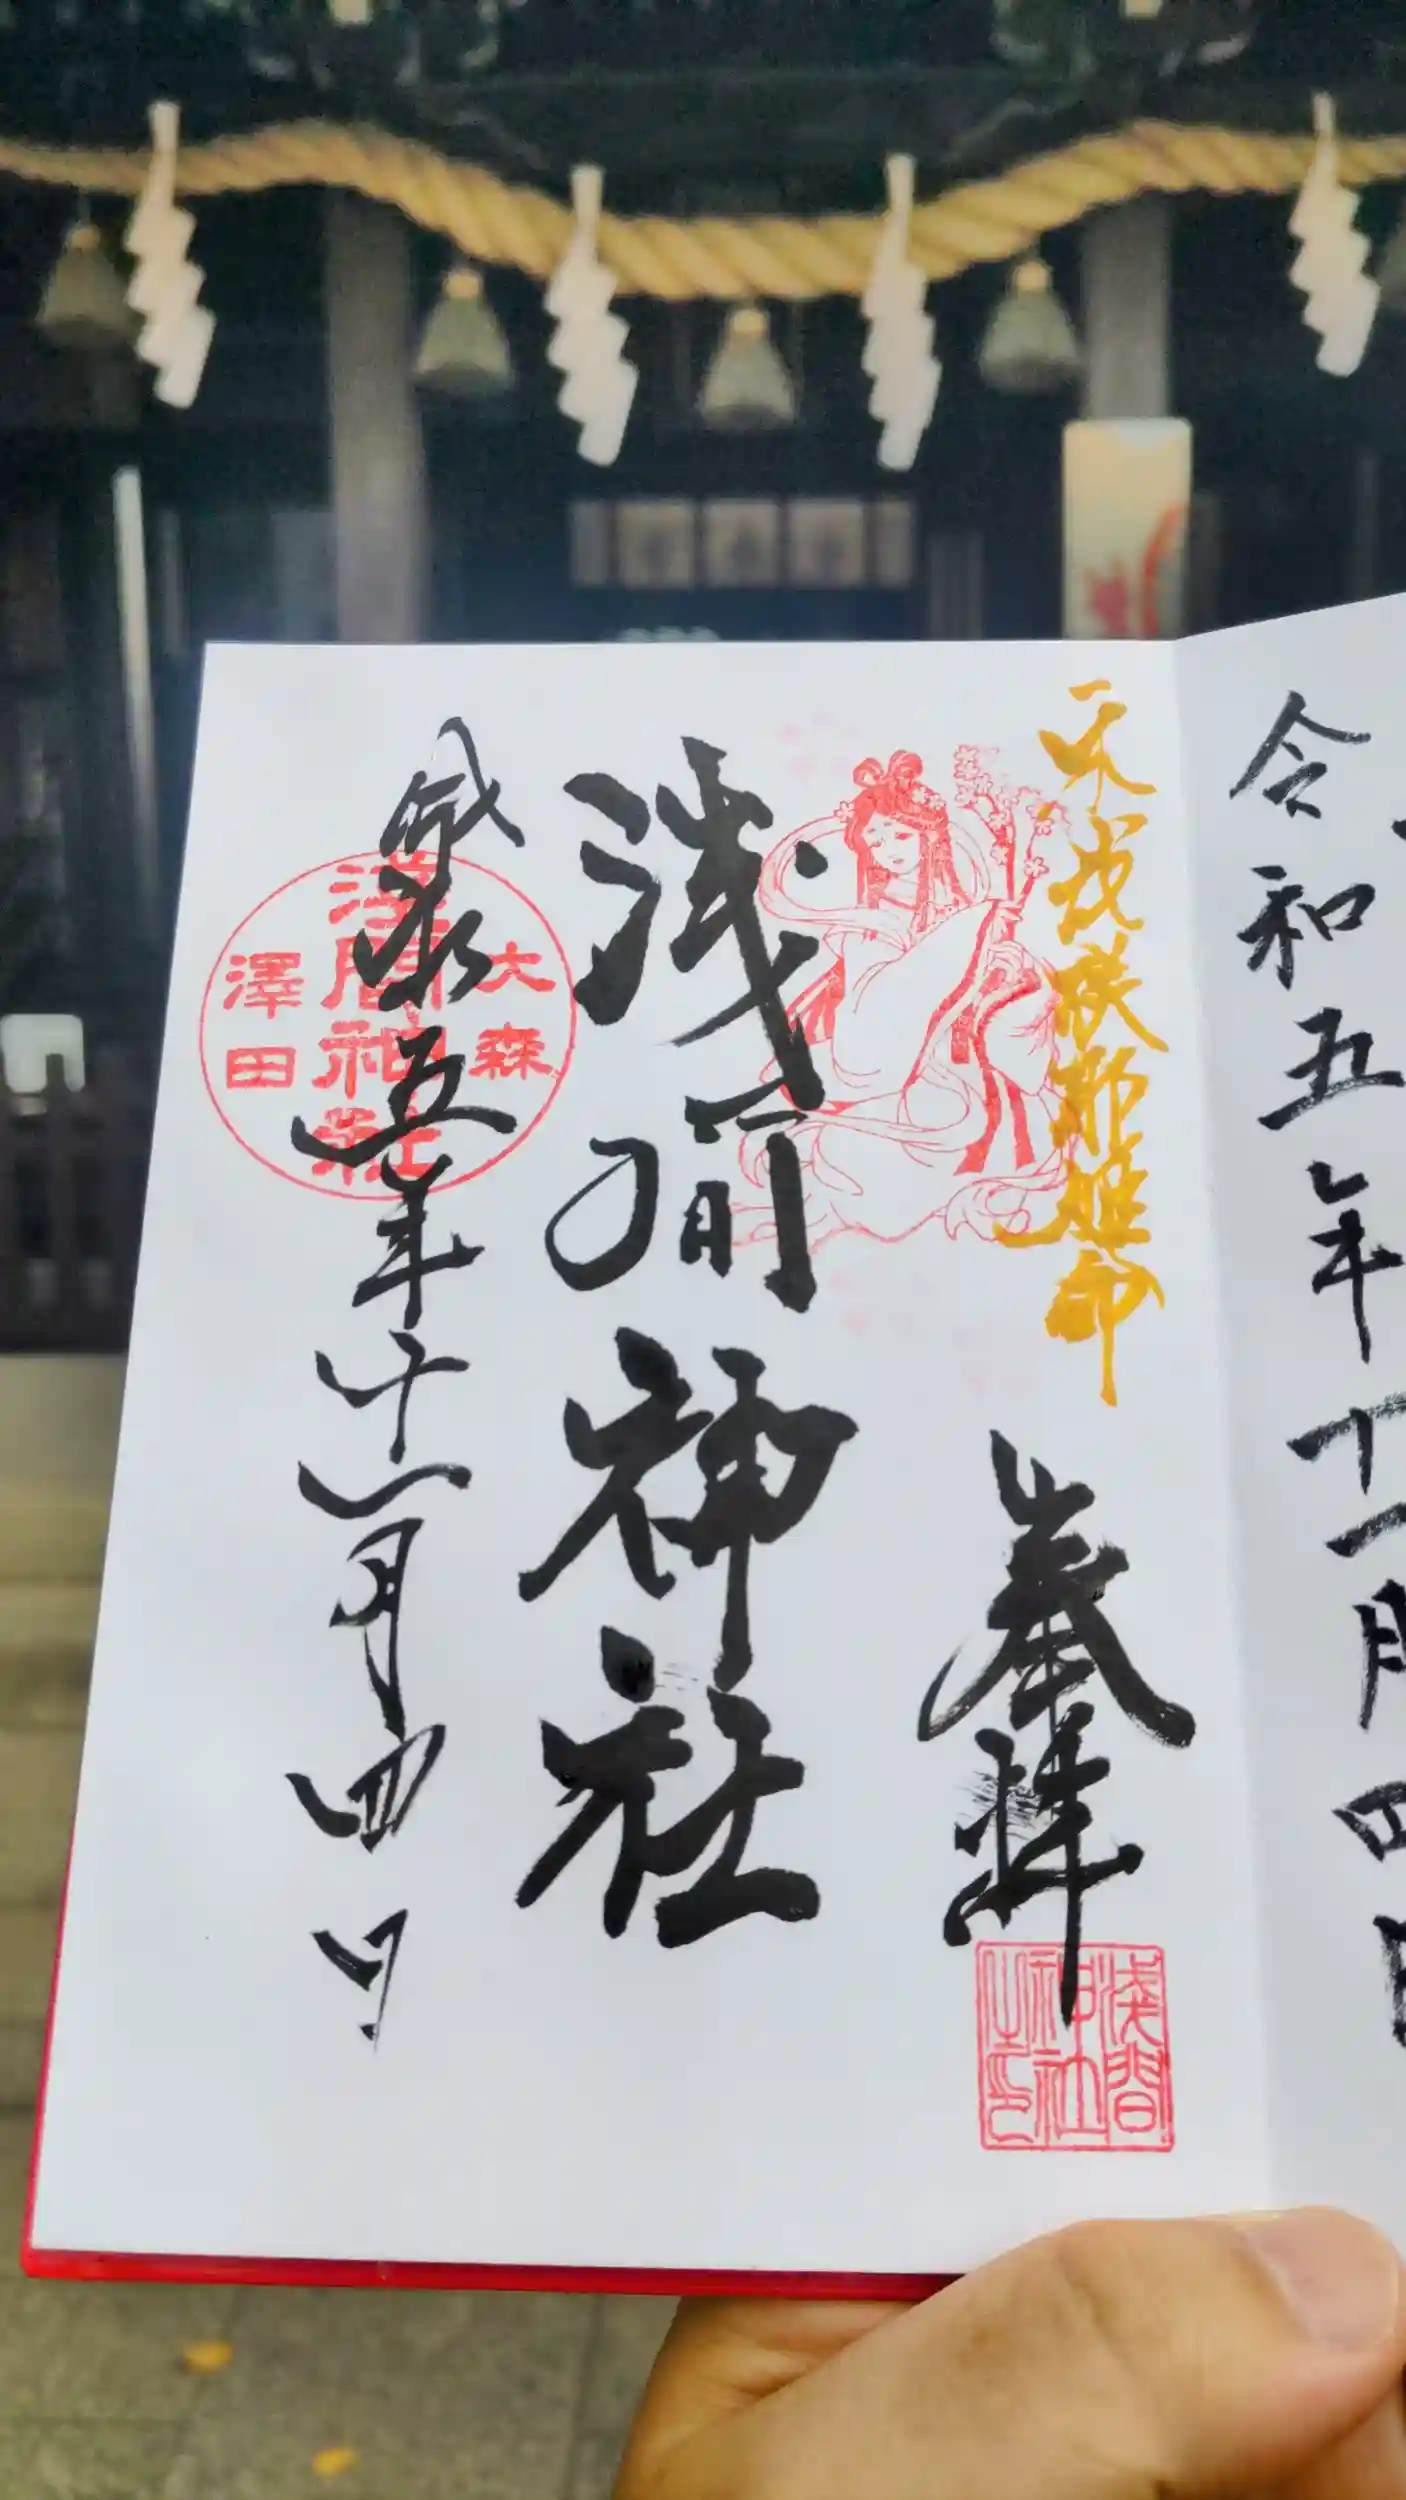 令和五年十一月四日
木花咲耶姫命
奉拝
淺間
神社
之印
浅間神社
大森
淺間神社
澤田
令和五年十一月四日